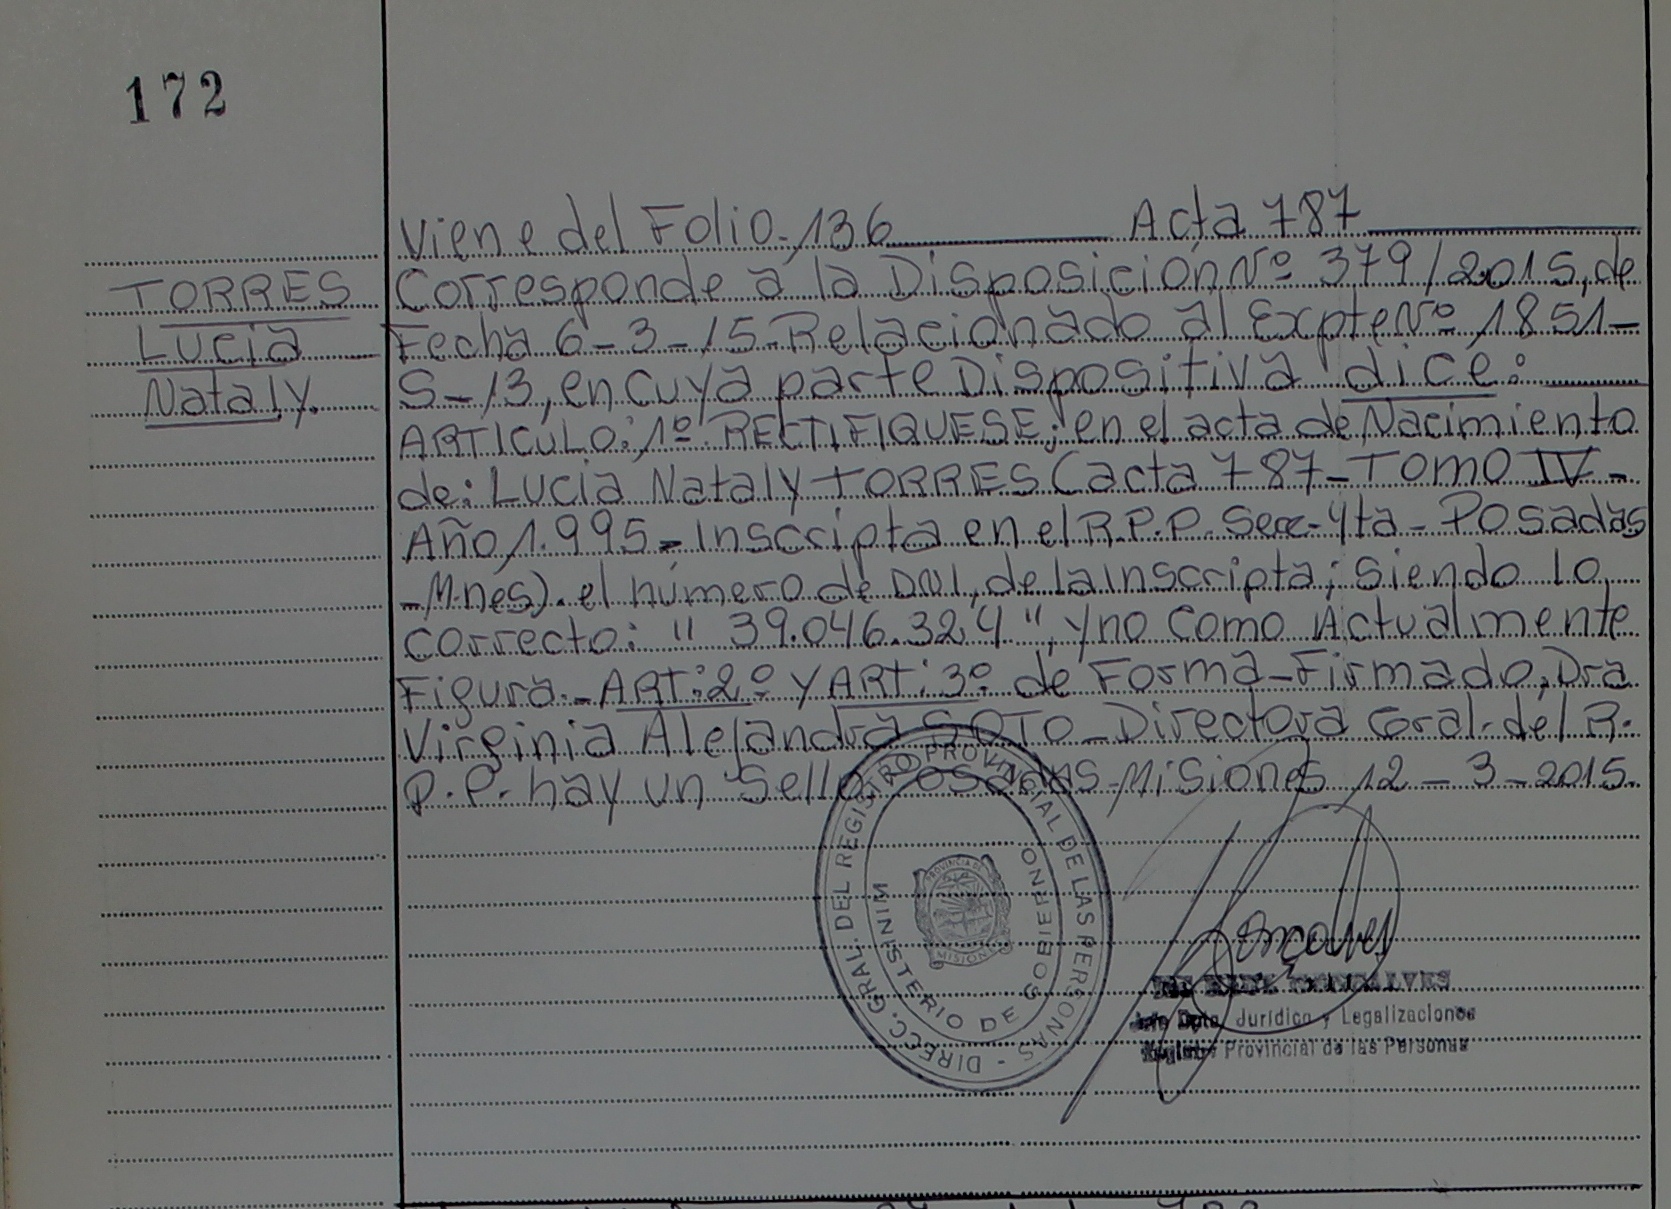 172
Viene del Folio. 136 Acta 787
TORRES
Lucia
Nataly.
Corresponde a la Disposición Nº 379/2015, de
Fecha 6-3-15. Relacionado al Expte Nº 1851-
S-13, en cuya parte Dispositiva dice:
ARTICULO: 1º RECTIFIQUESE; en el acta de Nacimiento
de: Lucia Nataly TORRES (acta 787- Tomo IV -
Año 1.995 - Inscripta en el R.P.P. Secc- 4ta - Posadas
-Mnes). el número de DNI, de la inscripta; siendo lo
correcto: " 39.046.324 ", y no como Actualmente
Figura.- ART: 2º y ART: 3º de Forma - Firmado, Dra
Virginia Alejandra SOTO - Directora Gral. del R.
P.P. hay un Sello Posadas - Misiones 12 - 3 - 2015.
DIREC. GRAL. DEL REGISTRO PROVINCIAL DE LAS PERSONAS -
MINISTERIO DE GOBIERNO
PROVINCIA DE
MISIONES
GONCALVES
Jefe Dpto. Jurídico y Legalizaciones
Registro Provincial de las Personas